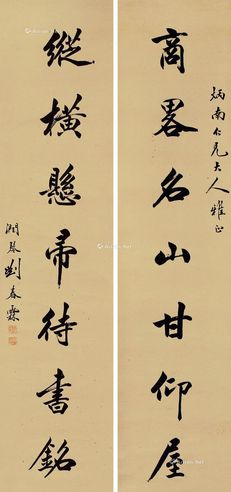 炳南仁兄大人雅正
商畧名山甘仰屋
縱橫懸帚待書銘
潤琴劉春霖